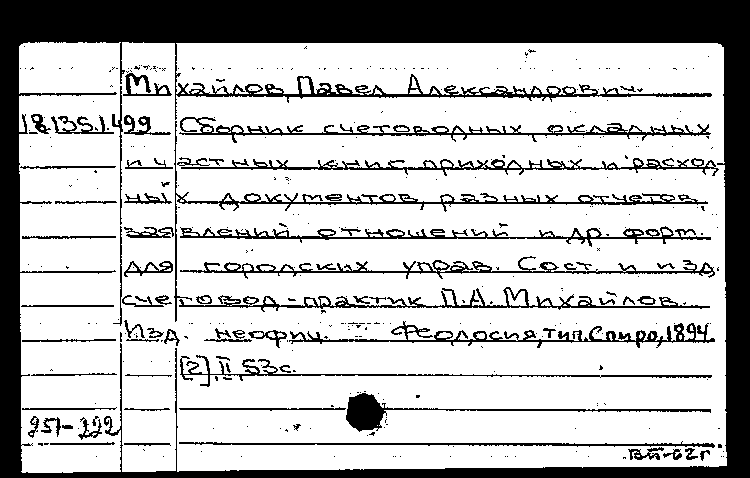 Михайлов, Павел Александрович.
18.135.1.499 Сборник счетоводных, окладных
и частных книг, приходных и расход-
ных документов, разных отчетов,
заявлений, отношений и др. форм.
для городских управ. Сост. и изд.
счетовод-практик П.А. Михайлов.
Изд. неофиц. Феодосия, тип. Спиро, 1894.
[2], II, 53 с.
251-222
ВП-62г